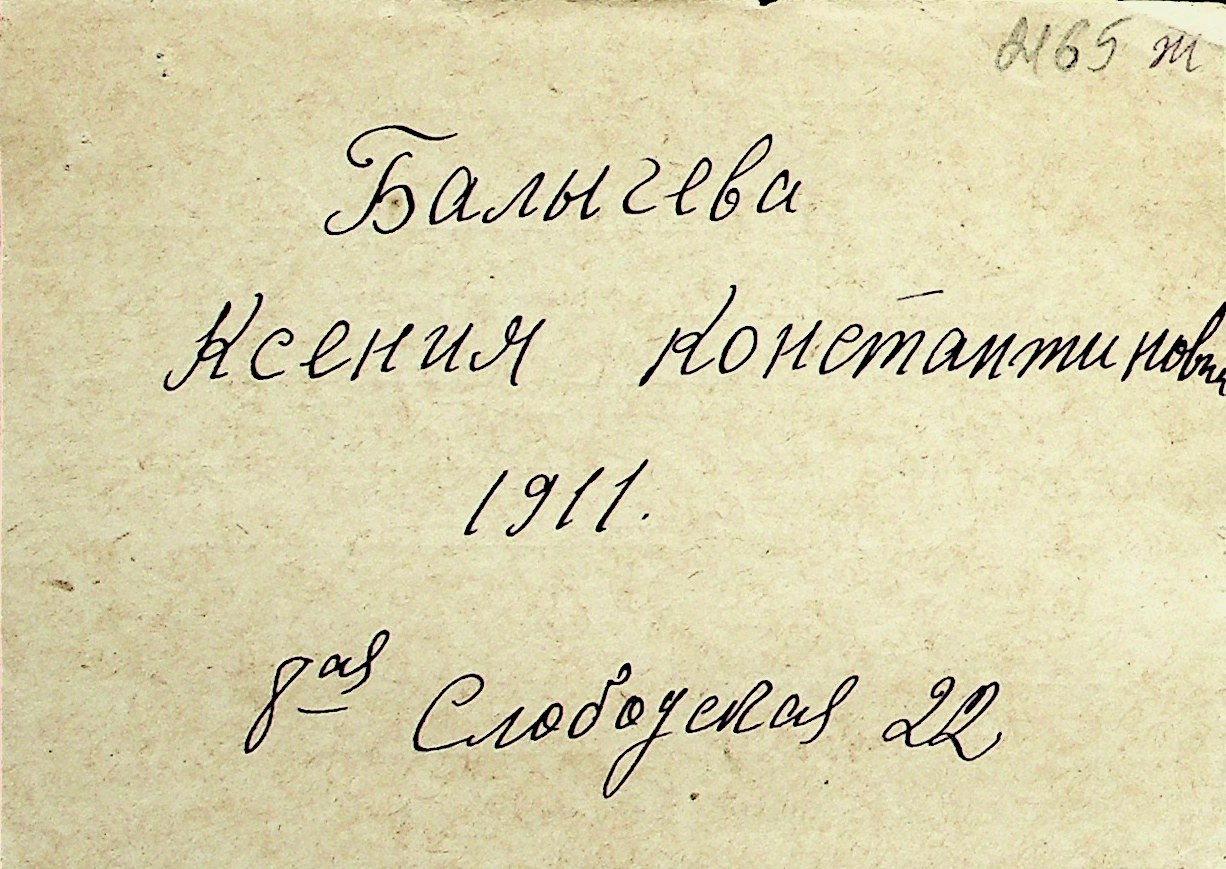 2165 ж
Балычева
Ксения Константиновн
1911.
8ая Слободская 22